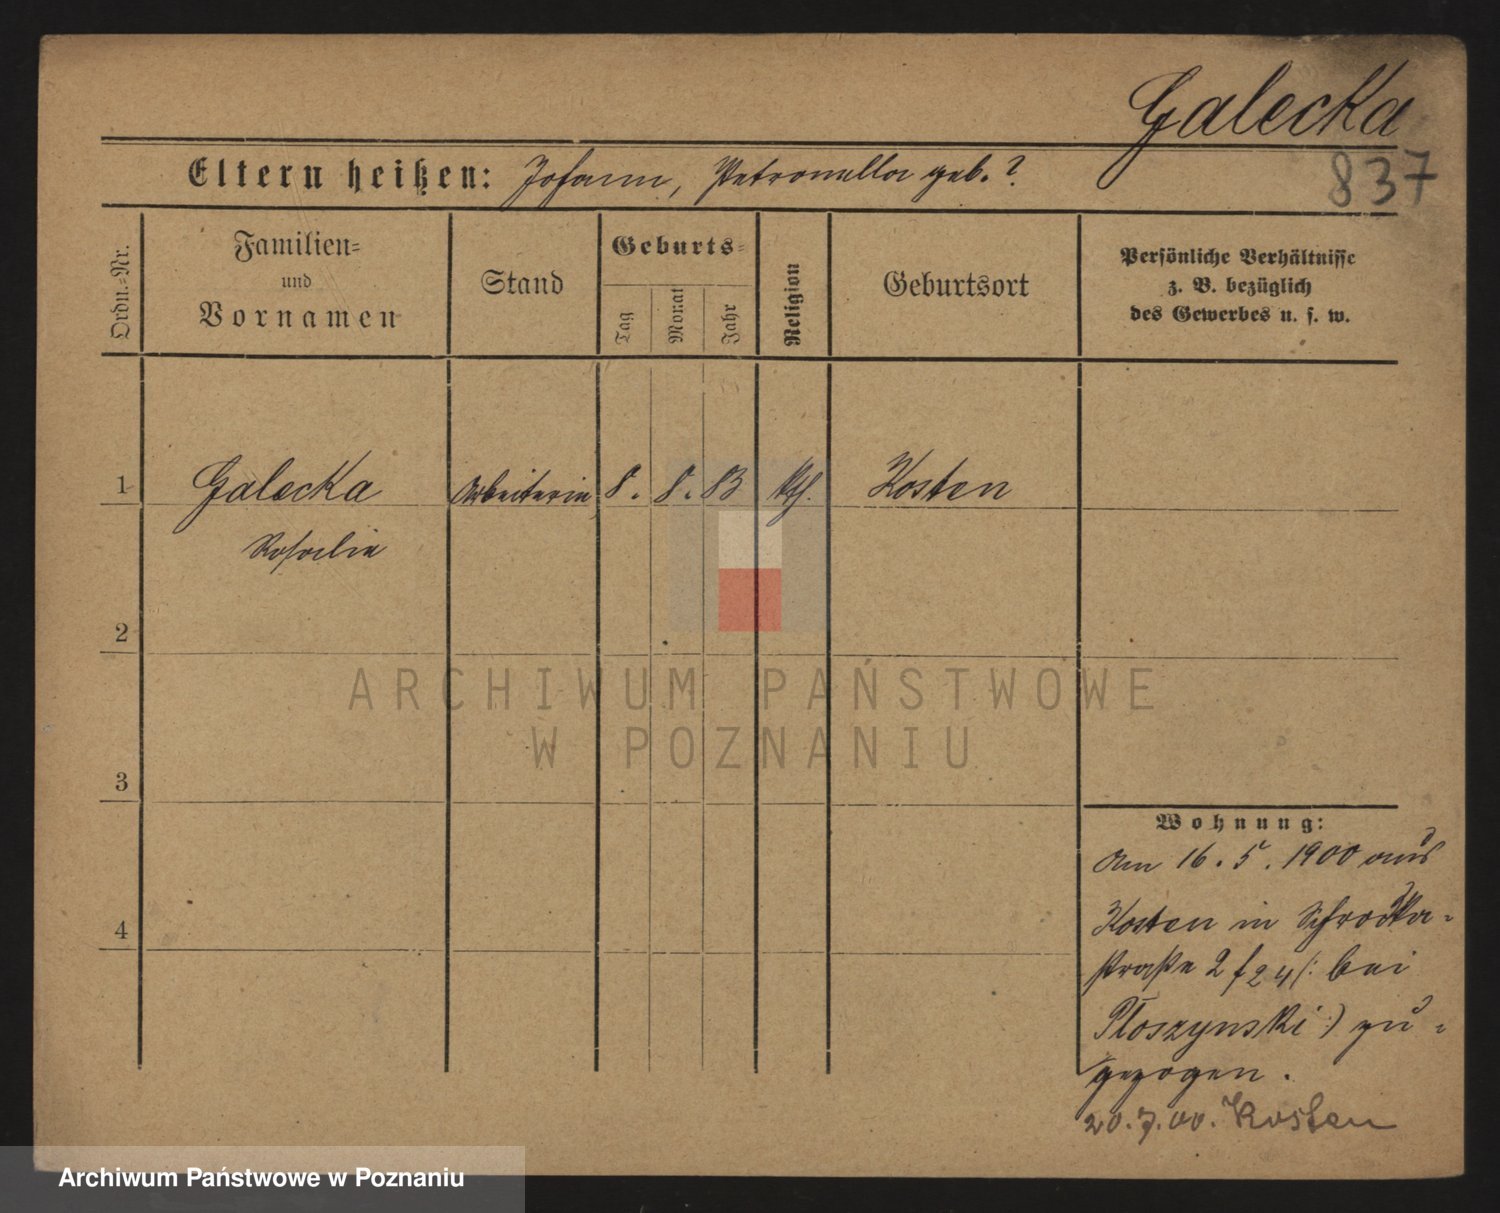 Galecka
837
Eltern heißen: Johann, Petronella geb. ?
Ordn.=Nr.
Familien=
und
Vornamen
Stand
Geburts=
Tag
Monat
Jahr
Religion
Geburtsort
Persönliche Verhältnisse
z. B. bezüglich
des Gewerbes u. s. w.
1
Galecka
Arbeiterin
8.
8.
83
kth.
Kosten
Rosalie
2
3
4
ARCHIWUM PAŃSTWOWE
W POZNANIU
Wohnung:
Am 16. 5. 1900 aus
Kosten in Schrodka=
straße 2 f 24 (: bei
Płoszynski :) zu=
gezogen.
20. 7. 00. Kosten
Archiwum Państwowe w Poznaniu